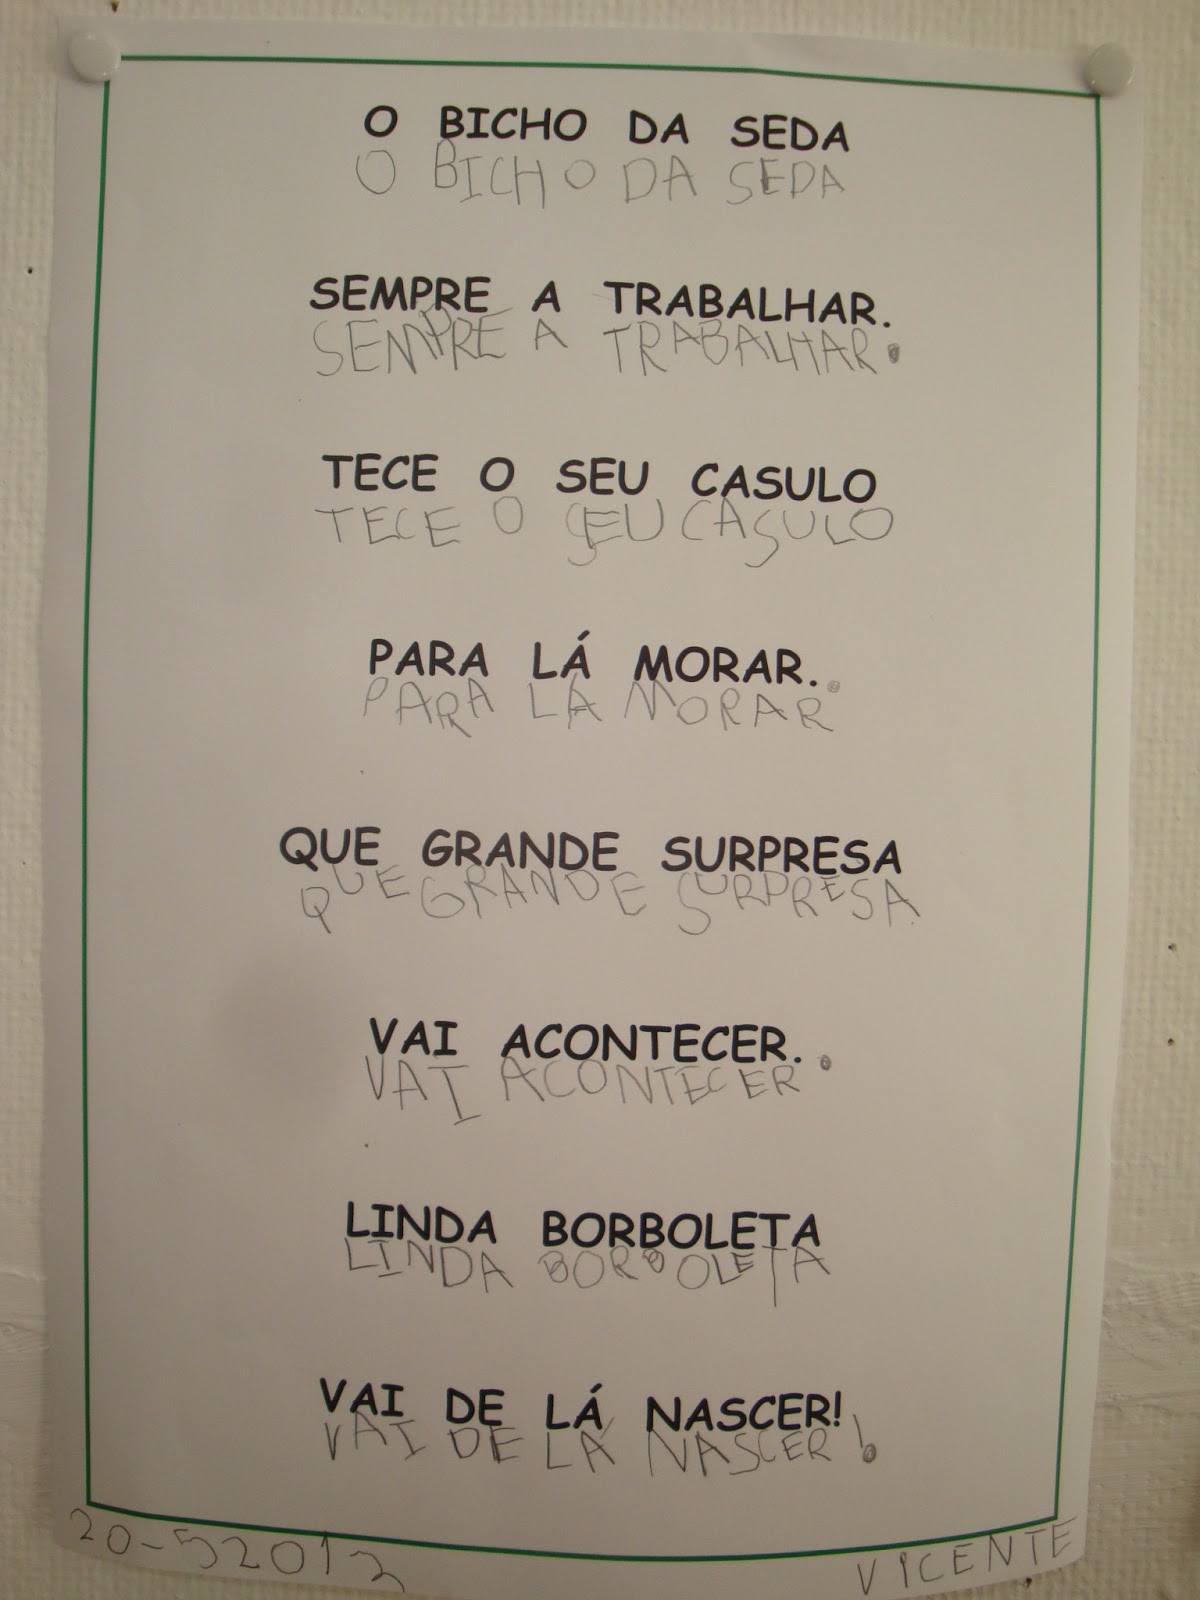 O BICHO DA SEDA
O BICHO DA SEDA
SEMPRE A TRABALHAR.
SEMPRE A TRABALHAR.
TECE O SEU CASULO
TECE O SEU CASULO
PARA LÁ MORAR.
PARA LÁ MORAR.
QUE GRANDE SURPRESA
QUE GRANDE SURPRESA
VAI ACONTECER.
VAI ACONTECER.
LINDA BORBOLETA
LINDA BORBOLETA
VAI DE LÁ NASCER!
VAI DE LÁ NASCER!
20-52012 VICENTE